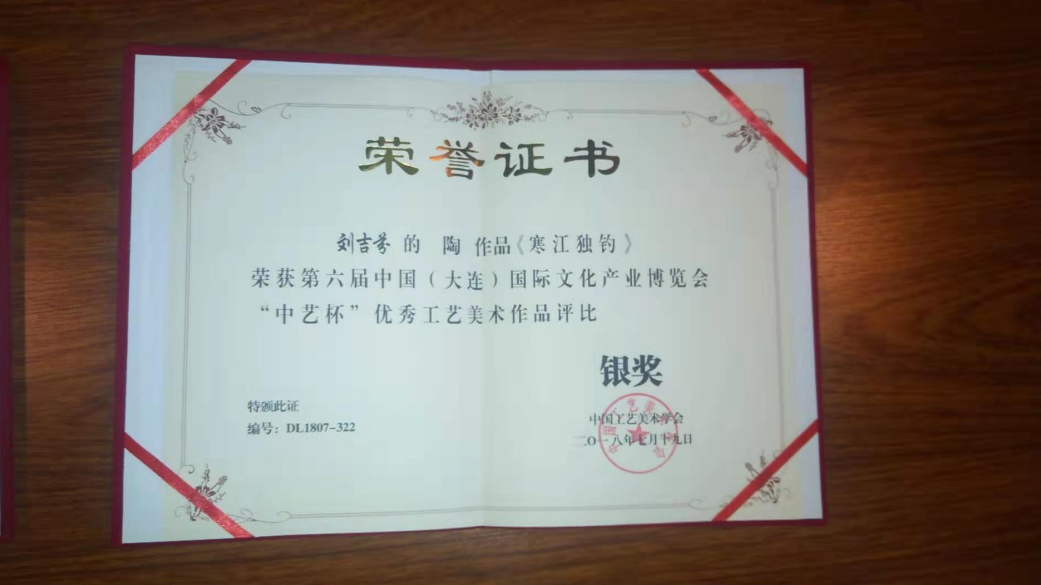 荣誉证书
刘吉芬 的 陶 作品《寒江独钓》
荣获第六届中国（大连）国际文化产业博览会
“中艺杯”优秀工艺美术作品评比
银奖
特颁此证
编号：DL1807-322
中国工艺美术学会
二〇一八年七月十九日